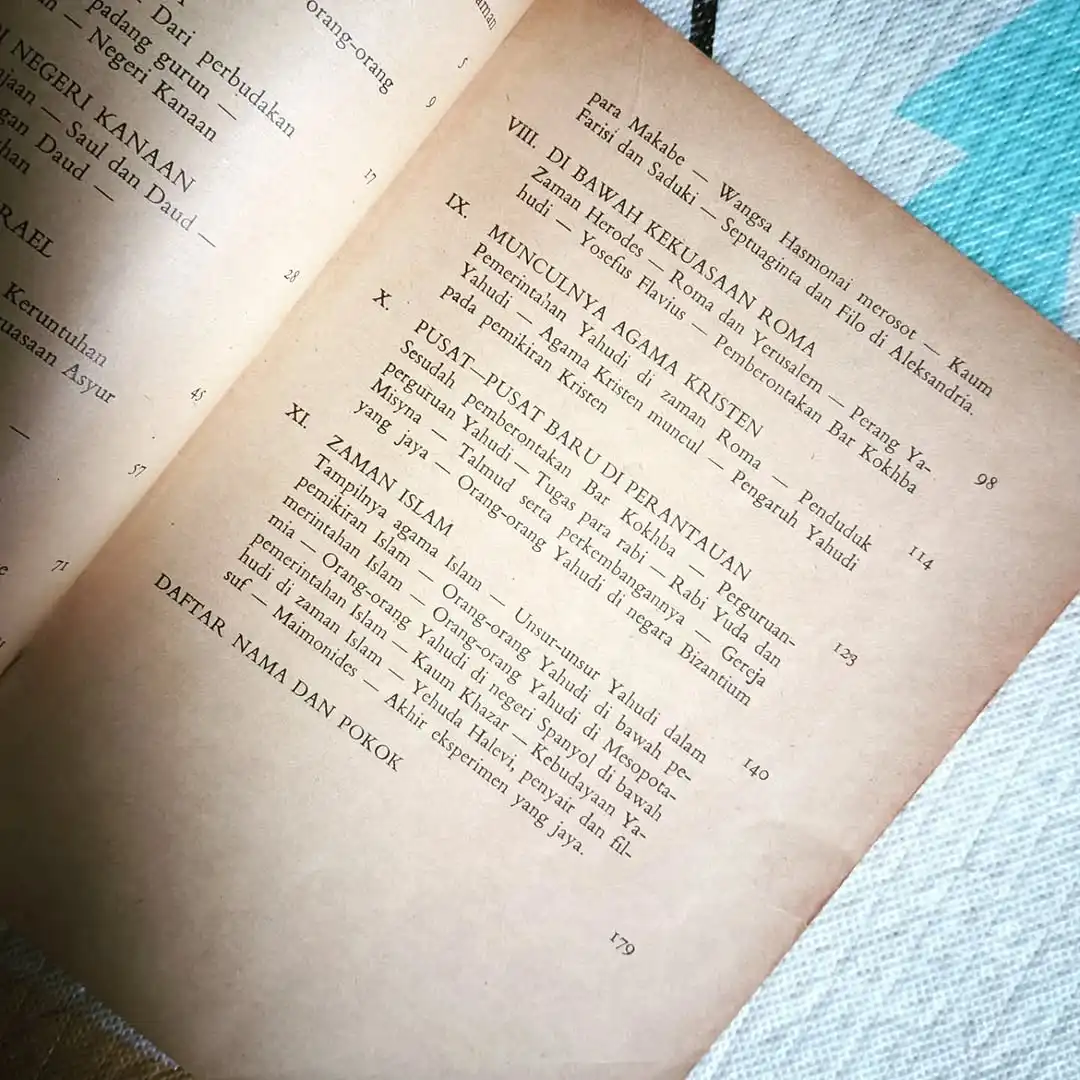 orang-orang
5
Dari perbudakan
padang gurun —
Negeri Kanaan
9
NEGERI KANAAN
Saul dan Daud —
Daud —
17
28
Keruntuhan
Asyur
45
—
57
71
para Makabe — Wangsa Hasmonai merosot — Kaum
Farisi dan Saduki — Septuaginta dan Filo di Aleksandria.
VIII. DI BAWAH KEKUASAAN ROMA
98
Zaman Herodes — Roma dan Yerusalem — Perang Ya-
hudi — Yosefus Flavius — Pemberontakan Bar Kokhba
IX. MUNCULNYA AGAMA KRISTEN
114
Pemerintahan Yahudi di zaman Roma — Penduduk
Yahudi — Agama Kristen muncul — Pengaruh Yahudi
pada pemikiran Kristen
X. PUSAT—PUSAT BARU DI PERANTAUAN
123
Sesudah pemberontakan Bar Kokhba — Perguruan-
perguruan Yahudi — Tugas para rabi — Rabi Yuda dan
Misyna — Talmud serta perkembangannya — Gereja
yang jaya — Orang-orang Yahudi di negara Bizantium
XI. ZAMAN ISLAM
140
Tampilnya agama Islam — Unsur-unsur Yahudi dalam
pemikiran Islam — Orang-orang Yahudi di bawah pe-
merintahan Islam — Orang-orang Yahudi di Mesopota-
mia — Orang-orang Yahudi di negeri Spanyol di bawah
pemerintahan Islam — Kaum Khazar — Kebudayaan Ya-
hudi di zaman Islam — Yehuda Halevi, penyair dan fil-
suf — Maimonides — Akhir eksperimen yang jaya.
DAFTAR NAMA DAN POKOK
179